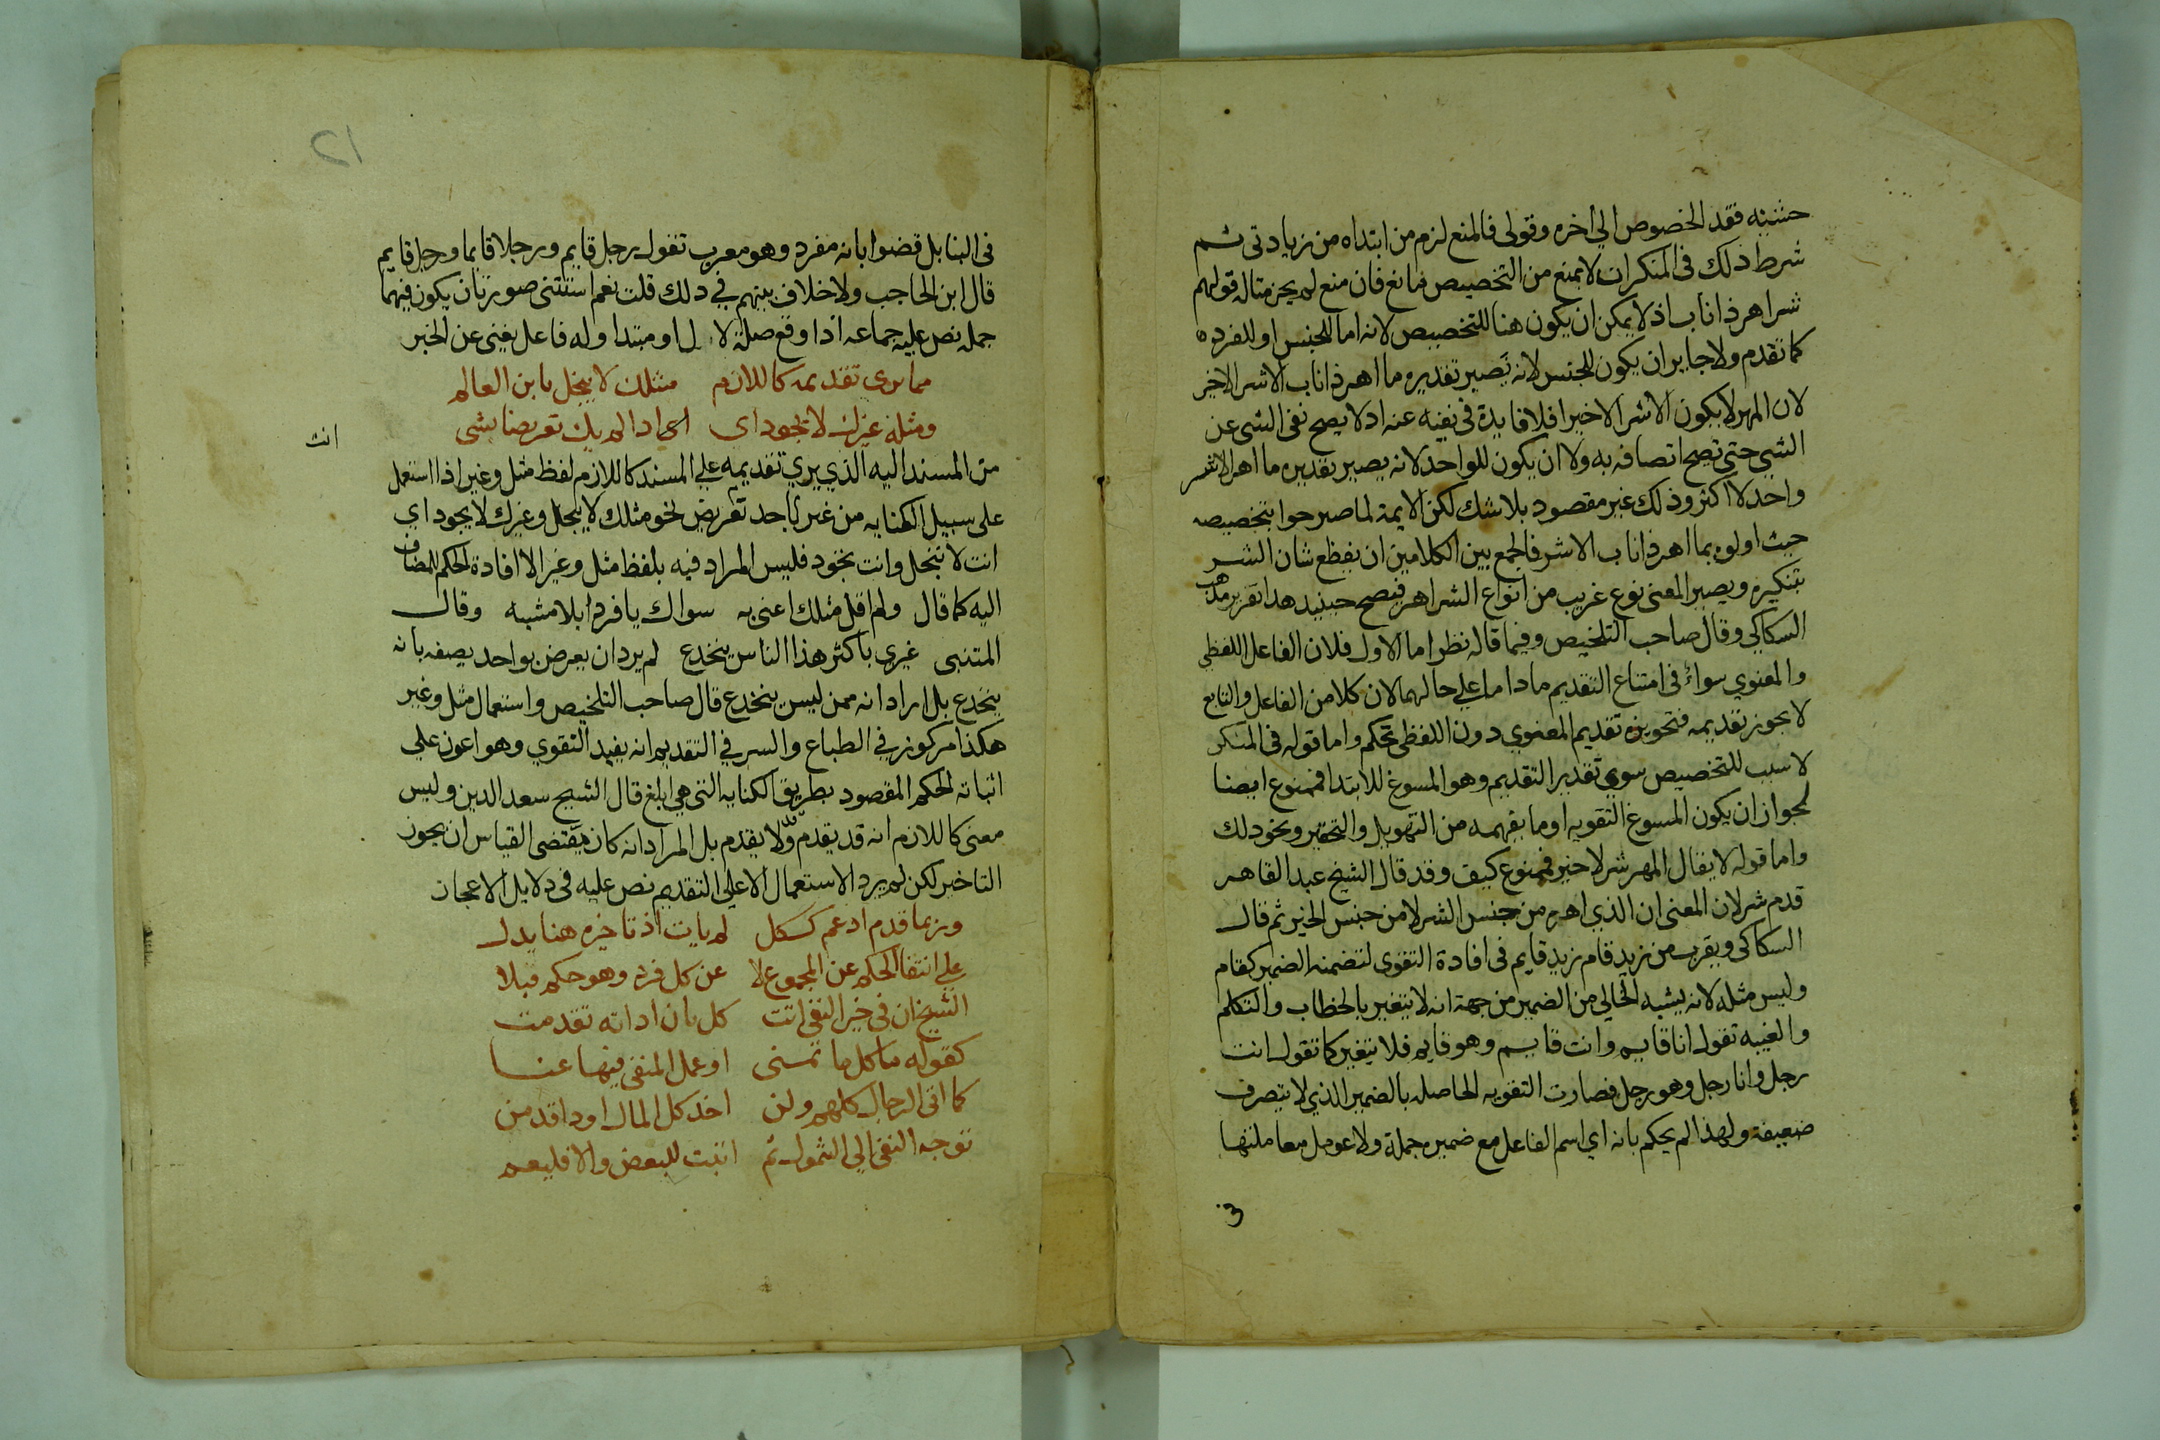 خشيه فقد الخصوص الي اخره وقولي فالمنع لزم من ابتداه من زيادتي ثم
شرط ذلك في المنكر ان لا يمنع من التخصيص مانع فان منع لم يجز مثاله قولهم
شر اهر ذا ناب اذ لا يمكن ان يكون هنا للتخصيص لانه اما للجنس او للفرد
كما تقدم ولا جايز ان يكون للجنس لانه يصير تقديره ما اهر ذا ناب الا شر لا خير
لان المهر لا يكون الا شر الا خيرا فلا فايدة في نفيه عنه اذ لا يصح نفي الشي عن
الشي حتي يصح اتصافه به ولا ان يكون للواحد لانه يصير تقديره ما اهر الا شر
واحد لا اكثر وذلك غير مقصود بلا شك لكن الايمة لما صرحوا بتخصيصه
حيث اولوه بما اهر ذا ناب الا شر فالجمع بين الكلامين ان يفظع شان الشر
بتنكيره ويصير المعني نوع غريب من انواع الشر اهر فيصح حينيذ هذا تقرير مذهب
السكاكي وقال صاحب التلخيص وفيما قاله نظر اما الاول فلان الفاعل اللفظي
والمعنوي سواء في امتناع التقديم ما داما علي حالهما لان كلا من الفاعل والتابع
لا يجوز تقديمه فتجويزه تقديم المعنوي دون اللفظي تحكم واما قوله في المنكر
لا سبب للتخصيص سوي تقدير التقديم وهو المسوغ للابتدا فممنوع ايضا
لجواز ان يكون المسوغ التقويه او ما يفهمه من التهويل والتحقير ونحو ذلك
واما قوله لا يقال المهر شر لا خير فممنوع كيف وقد قال الشيخ عبد القاهر
قدم شر لان المعني ان الذي اهره من جنس الشر لا من جنس الخير ثم قال
السكاكي ويقرب من زيد قام زيد قايم في افادة التقوي لتضمنه الضمير كقام
وليس مثله لانه يشبه الخالي من الضمير من جهة انه لا يتغير بالخطاب والتكلم
والغيبه تقول انا قايم وانت قايم وهو قايم فلا يتغير كما تقول انت
رجل وانا رجل وهو رجل فصارت التقويه الحاصله بالضمير الذي لا يتصرف
ضعيفة ولهذا لم يحكم بانه اي اسم الفاعل مع ضميره جملة ولا عومل معاملتها
في
١٢
في البنا بل قضوا بانه مفرد وهو معرب تقول رجل قايم ورجلا قايما ورجل قايم
قال ابن الحاجب ولا خلاف بينهم في ذلك قلت نعم استثني صورتان يكون فيهما
جمله نص عليه جماعه اذا وقع صلة لال او مبتدا وله فاعل يغني عن الخبر
مما يري تقديمه كاللازم مثلك لا يبخل يا ابن العالم
ومثله غيرك لا يجود اي اذا لم يك تعريضا بشي
انت
من المسند اليه الذي يري تقديمه علي المسند كاللازم لفظ مثل وغير اذا استعمل
علي سبيل الكنايه من غير تعريض نحو مثلك لا يبخل وغيرك لا يجود اي
انت لا تبخل وانت تجود فليس المراد فيه بلفظ مثل وغير الا افادة الحكم للمضاف
اليه كما قال ولم اقل مثلك اعني به سواك يا فردا بلا مشبه وقال
المتنبي غيري باكثر هذا الناس ينخدع لم يرد ان يعرض بواحد يصفه بانه
ينخدع بل اراد انه ممن ليس ينخدع قال صاحب التلخيص واستعمال مثل وغير
هكذا مركوز في الطباع والسر في التقديم انه يفيد التقوي وهو اعون علي
اثباته الحكم المقصود بطريق الكنايه التي هي ابلغ قال الشيخ سعد الدين وليس
معني كاللازم انه قد يقدم وقد لا يقدم بل المراد انه كان مقتضي القياس ان يجوز
التاخير لكن لم يرد الاستعمال الا علي التقديم نص عليه في دلايل الاعجاز
وربما قدم اذ عم ككل لم يات اذ تاخيره هنا يدل
علي انتفا الحكم عن المجموع لا عن كل فرد وهو حكم قبلا
الشيخ ان في حيز النفي اتت كل بان اداته تقدمت
كقوله ما كل ما تمني او عمل المنفي فيها عنا
كما اتي الرجال كلهم ولن اخذ كل المال او ذا قدمن
توجه النفي الي الشمول ثم اثبت للبعض والا فليعم